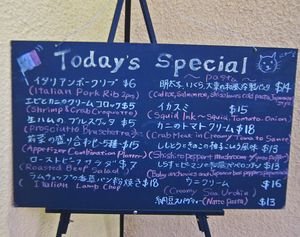 Today's Special
~ pasta ~
イタリアンポークリブ $6
(Italian Pork Rib 2pn)
エビとカニのクリームコロッケ $5
(Shrimp & Crab Croquette)
生ハムのブルスケッタ $5
(Prosciutto Bruschetta)
前菜の盛り合わせ 5種 $15
(Appetizer Combination Platter)
ローストビーフサラダ $7
(Roasted Beef Salad)
ラムチョップの香草パン粉焼き $18
(Italian Lamb Chop)
明太子、いくら、大葉の和風冷製パスタ $14
イカスミ $15
(Squid Ink ~ Squid, Tomato, Onion)
カニのトマトクリーム $18
(Crab Meat in Creamy Tomato Sauce)
ししとうときのこの 風味 $13
(Shishito pepper, Mushroom
しらすと $13
ウニクリーム $16
(Creamy Sea Urchin)
納豆スパゲティ (Natto Pasta) $13